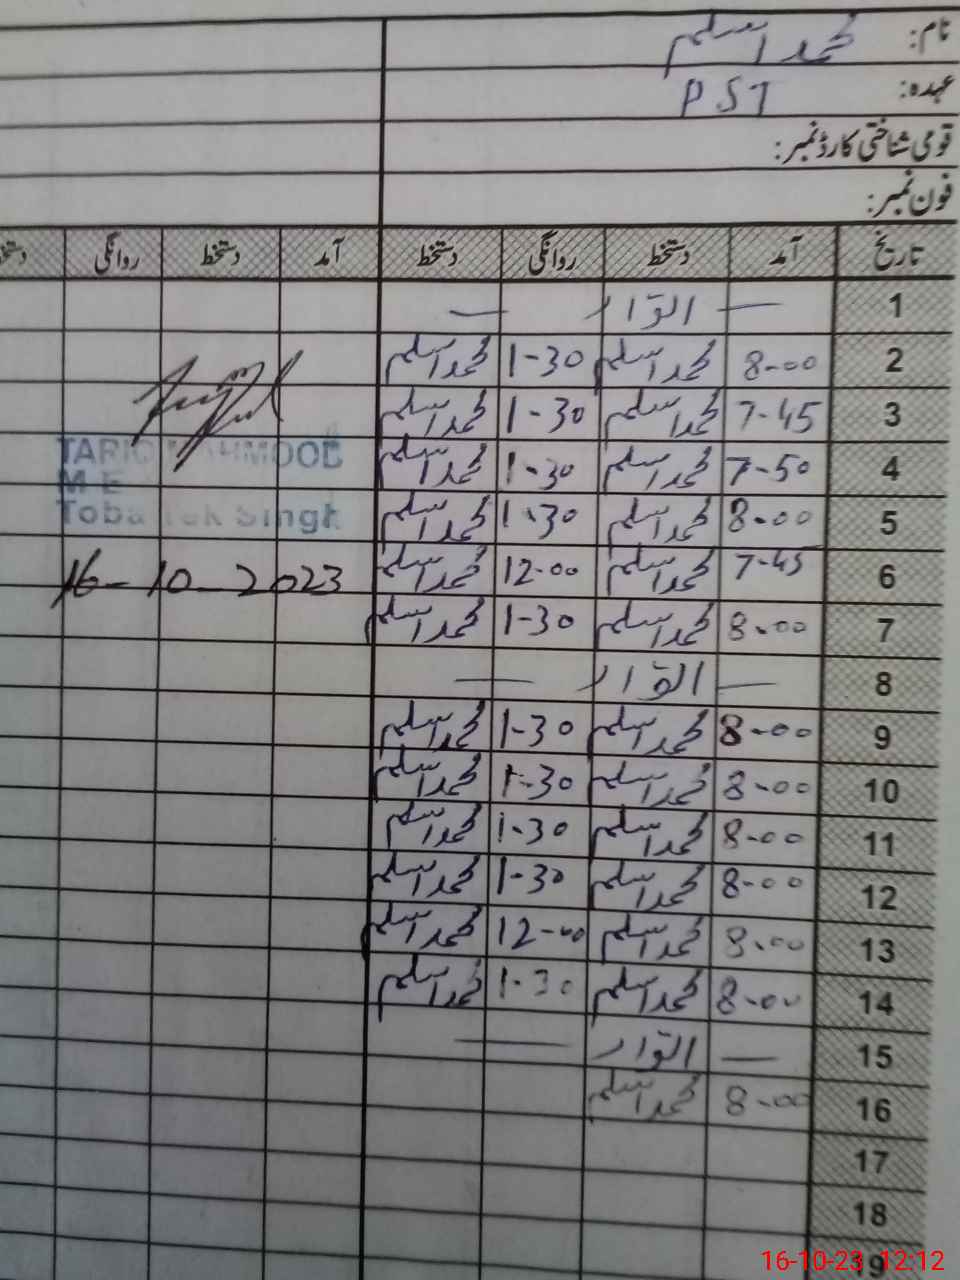 نام: محمد اسلم
عہدہ: PST
قومی شناختی کارڈ نمبر:
فون نمبر:
تاریخ آمد دستخط روانگی دستخط آمد دستخط روانگی دستخط
1 — اتوار —
2 8-00 محمد اسلم 1-30 محمد اسلم
3 7-45 محمد اسلم 1-30 محمد اسلم
4 7-50 محمد اسلم 1-30 محمد اسلم
TARIQ MAHMOOD
M E
5 8-00 محمد اسلم 1-30 محمد اسلم
Toba Tek Singh
6 7-45 محمد اسلم 12-00 محمد اسلم
16-10-2023
7 8-00 محمد اسلم 1-30 محمد اسلم
8 — اتوار —
9 8-00 محمد اسلم 1-30 محمد اسلم
10 8-00 محمد اسلم 1-30 محمد اسلم
11 8-00 محمد اسلم 1-30 محمد اسلم
12 8-00 محمد اسلم 1-30 محمد اسلم
13 8-00 محمد اسلم 12-00 محمد اسلم
14 8-00 محمد اسلم 1-30 محمد اسلم
15 — اتوار —
16 8-00 محمد اسلم
17
18
19
16-10-23 12:12